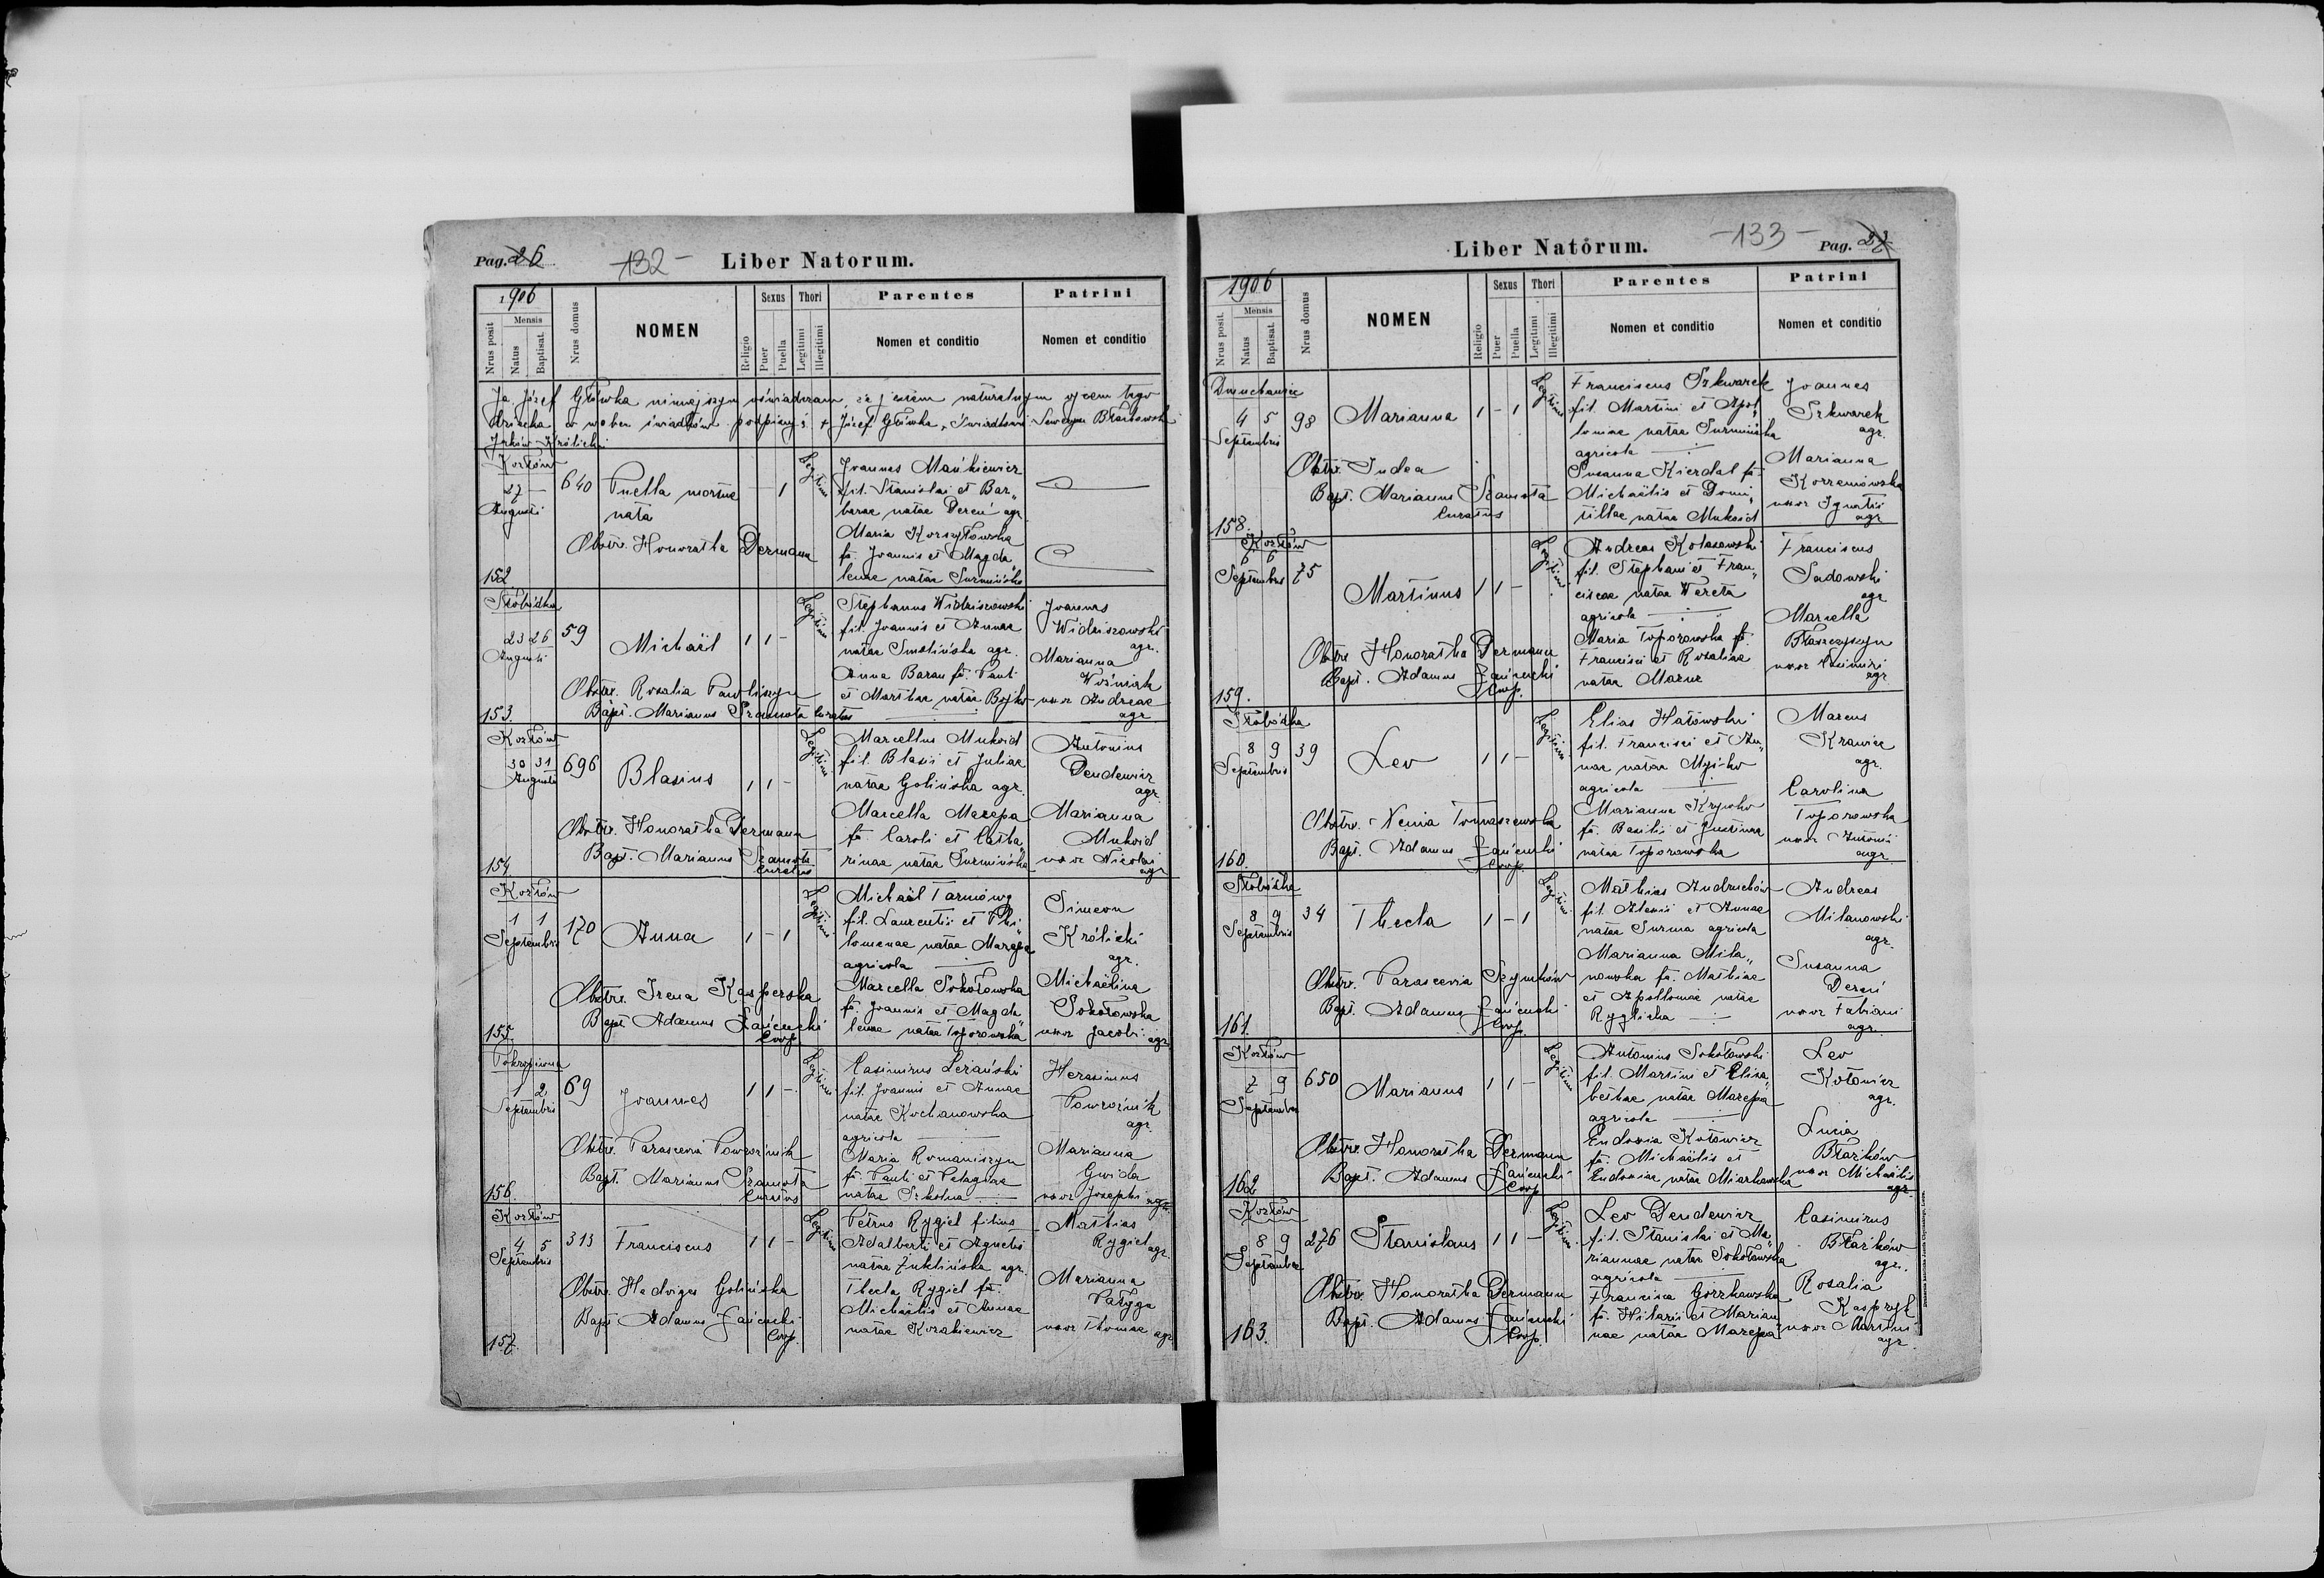 Pag. 26
-132-
Liber Natorum.
1906
Nrus posit
Mensis
Natus
Baptisat.
Nrus domus
NOMEN
Religio
Sexus
Puer
Puella
Thori
Legitimi
Illegitimi
Parentes
Nomen et conditio
Patrini
Nomen et conditio
Ja Józef Główka niniejszym oświadczam, że jestem naturalnym ojcem tego
dziecka w obec świadków podpisany: + Józef Główka, Świadkowie Seweryn Błażkowski
Królicki
Kozłów
27 -
Augusti
640
Puella mortue
nata
- 1
Legitimi
Joannes Mańkiewicz
fil. Stanislai et Bar„
barae natae Dereń agr.
Maria Korzyłowska
fa. Joannis et Magda„
lenae natae Surmińska
Obstr. Honoratha Dermann
152.
Słobódka
23 26
Augusti
59
Michaël
1 1 -
Legitimi
Stephanus Widziszowski
fil. Joannis et Annae
natae Smolińska agr.
Anna Baran fa. Pauli
et Marthae natae Bojko
Joannes
Widziszowski
agr.
Marianna
Woźniak
uxor Andreae
agr
Obstr. Rosalia Pawliszyn
Bapt. Marianus Szamota Curatus
153.
Kozłów
30 31
Augusti
696
Blasius
1 1 -
Legitimi
Marcellus Mukoid
fil. Blasii et Juliae
natae Golińska agr.
Marcella Mazepa
fa. Caroli et Catha„
rinae natae Surmińska
Antonius
Dendewicz
agr.
Marianna
Mukoid
uxor Nicolai
agr
Obstr. Honoratha Dermann
Bapt. Marianus Szamota
Curatus
154.
Kozłów
1 1
Septembris
170
Anna
1 - 1
Legitimi
Michaël Tarnowy
fil. Laurentii et Phi„
lomenae natae Mazepa
agricola
Marcella Sokołowska
fa. Joannis et Magda
lenae natae Toporowska
Simeon
Królicki
agr.
Michaëlina
Sokołowska
uxor Jacobi agr.
Obstr. Irena Kasperska
Bapt. Adamus Łańcucki
Coop.
155.
Pokropiwna
1 2
Septembris
69
Joannes
1 1 -
Legitimi
Casimirus Leżański
fil. Joannis et Annae
natae Kochanowska
agricola
Maria Romaniszyn
fa. Pauli et Pelagiae
natae Szkolna
Herasimus
Powroźnik
agr.
Marianna
Gwida
uxor Josephi agr.
Obstr. Parascevia Powroźnik
Bapt. Marianus Szamota
Curatus
156.
Kozłów
4 5
Septembris
313
Franciscus
1 1 -
Legitimi
Petrus Rygiel filius
Adalberti et Agnetis
natae Żuklińska agr.
Thecla Rygiel fa.
Michaëlis et Annae
natae Kozakiewicz
Mathias
Rygiel
agr.
Marianna
Pałyga
uxor Thomae agr
Obstr. Hedviges Golińska
Bapt. Adamus Łańcucki
Coop.
157.
Liber Natorum.
-133-
Pag.
1906
Nrus posit.
Mensis
Natus
Baptisat.
Nrus domus
NOMEN
Religio
Sexus
Puer
Puella
Thori
Legitimi
Illegitimi
Parentes
Nomen et conditio
Patrini
Nomen et conditio
4 5
Septembris
98
Marianna
1 - 1
Legitimi
Franciscus Szkwarek
fil. Martini et Apol„
loniae natae Surmińska
agricola
Susanna Kierdal fa.
Michaëlis et Domi„
tillae natae Mukoid
Joannes
Szkwarek
agr.
Marianna
Korzeniowska
uxor Ignatii
agr
Obstr. Judea
Bapt. Marianus Szamota
Curatus
158.
Kozłów
6 6
Septembris
75
Martinus
1 1 -
Legitimi
Andreas Kolasowski
fil. Stephani et Fran„
ciscae natae Wereta
agricola
Maria Toporowska fa.
Francisci et Rosaliae
natae Mazur
Franciscus
Sadowski
agr
Marcella
Błaszczyszyn
uxor Casimiri
agr
Obstr. Honoratha Dermann
Bapt. Adamus Łańcucki
Coop.
159.
Słobódka
8 9
Septembris
39
Leo
1 1 -
Legitimi
Elias Hałówski
fil. Francisci et An„
nae natae Myśko
agricola
Marianna Krysko
fa. Basilii et Justinae
natae Toporowska
Marcus
Krawiec
agr.
Carolina
Toporowska
uxor Antonii
agr.
Obstr. Xenia Tomaszewska
Bapt. Adamus Łańcucki
Coop.
160.
Słobódka
8 9
Septembris
34
Thecla
1 - 1
Legitimi
Mathias Andruchów
fil. Alexii et Annae
natae Surma agricola
Marianna Mila„
nowska fa. Mathiae
et Apolloniae natae
Ryglicka
Andreas
Milanowski
agr.
Susanna
Dereń
uxor Fabiani
agr.
Obstr. Parascevia Szymków
Bapt. Adamus Łańcucki
Coop.
161.
Kozłów
7 9
Septembris
650
Marianus
1 1 -
Legitimi
Antonius Sokołowski
fil. Martini et Elisa„
bethae natae Mazepa
agricola
Eudoxia Kotowicz
fa. Michaëlis et
Eudoxiae natae Miarkowska
Leo
Kotowicz
agr.
Lucia
Błażków
uxor Michaëlis
agr.
Obstr. Honoratha Dermann
Bapt. Adamus Łańcucki
Coop
162
Kozłów
8 9
Septembris
276
Stanislaus
1 1 -
Legitimi
Leo Dendewicz
fil. Stanislai et Ma„
riannae natae Sokołowska
agricola
Francisca Gorzkowska
fa. Hilarii et Marian„
nae natae Mazepa
Casimirus
Błażków
agr.
Rosalia
Kasprzyk
uxor Martini
agr.
Obstr. Honoratha Dermann
Bapt. Adamus Łańcucki
Coop.
163.